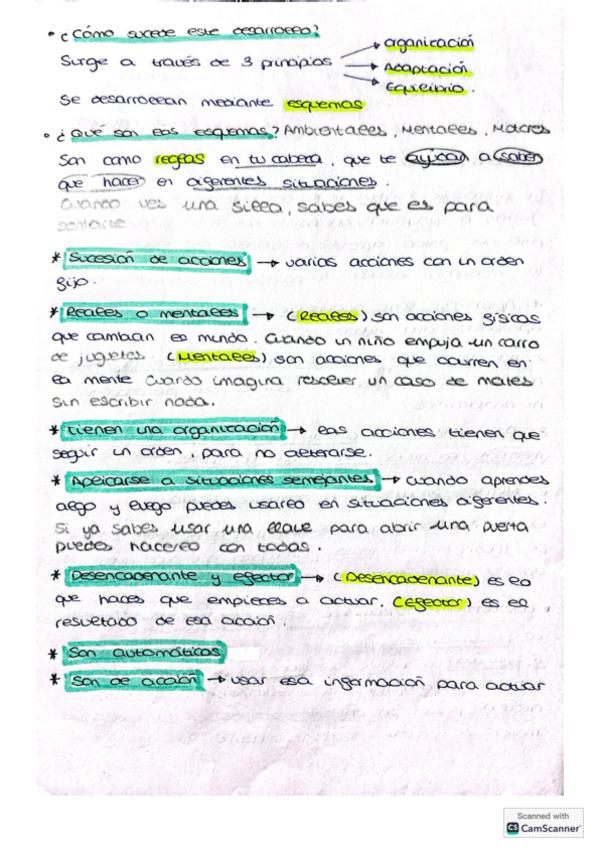 • ¿Cómo sucede este desarrollo?
Organización
Surge a través de 3 principios
Adaptación
Equilibrio.
Se desarrollan mediante esquemas
• ¿Qué son los esquemas? Ambientales, Mentales, Motores
Son como reglas en tu cabeza, que te ayudan a saber
que hacer en diferentes situaciones.
Cuando ves una silla, sabes que es para
sentarte
* Sucesión de acciones → varias acciones con un orden
fijo.
* Reales o mentales → (Reales) son acciones físicas
que cambian el mundo. Cuando un niño empuja un carro
de juguetes. (Mentales) son acciones que ocurren en
la mente cuando imagina resolver un caso de mates
sin escribir nada.
* Tienen una organización → las acciones tienen que
seguir un orden, para no alterarse.
* Aplicarse a situaciones semejantes → cuando aprendes
algo y luego puedes usarlo en situaciones diferentes.
Si ya sabes usar una llave para abrir una puerta
puedes hacerlo con todas.
* Desencadenante y efector → (Desencadenante) es lo
que haces que empieces a actuar. (efector) es el
resultado de esa acción.
* Son automáticos
* Son de acción → usar esa información para actuar
Scanned with
CS CamScanner